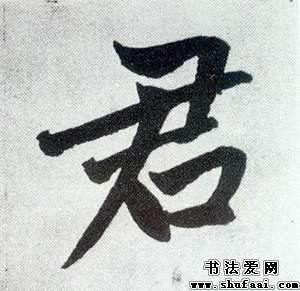 君
书法爱网
www.shufaai.com